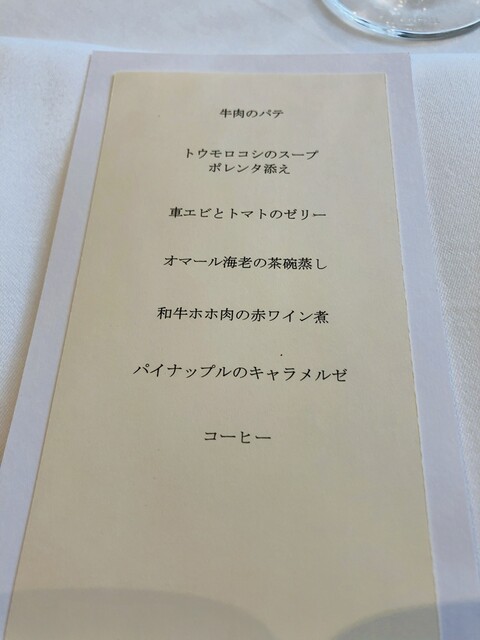 牛肉のパテ
トウモロコシのスープ
ポレンタ添え
車エビとトマトのゼリー
オマール海老の茶碗蒸し
和牛ホホ肉の赤ワイン煮
パイナップルのキャラメルゼ
コーヒー